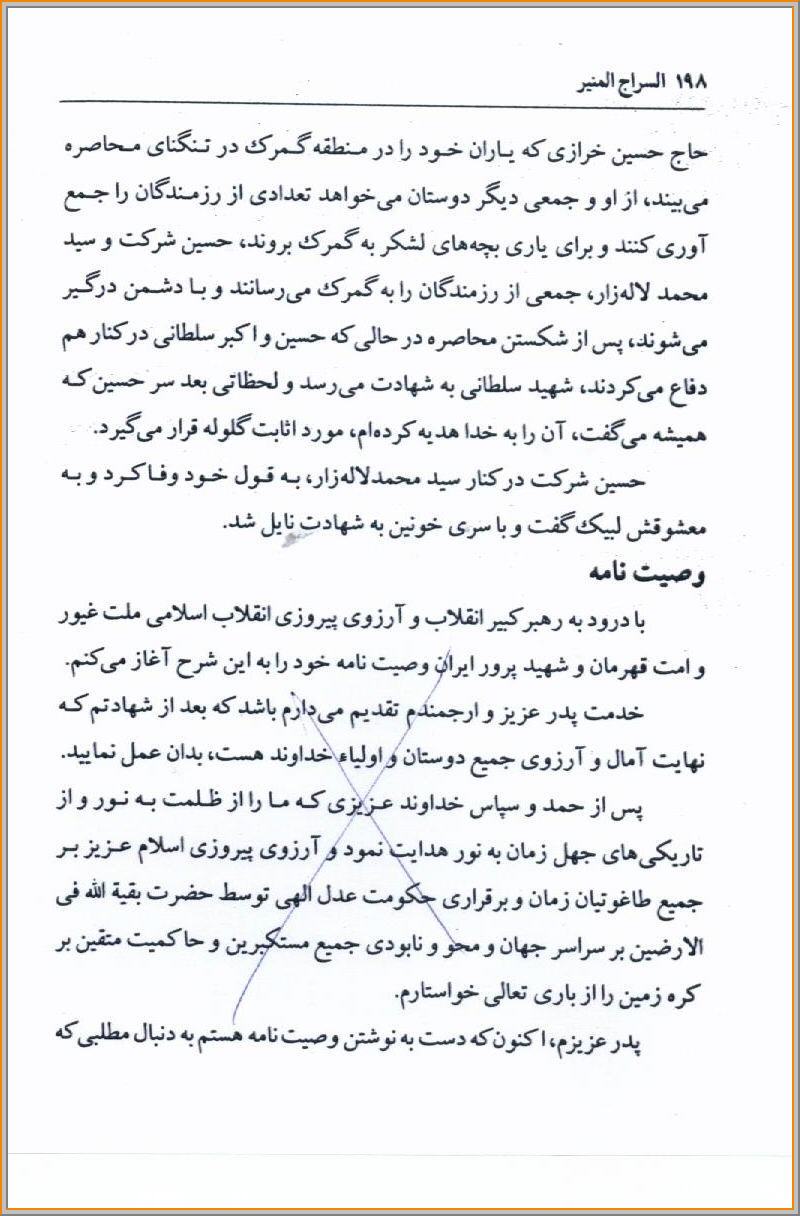 ۱۹۸ السراج المنیر
حاج حسین خرازی که یاران خود را در منطقه گمرک در تنگنای محاصره
می‌بیند، از او و جمعی دیگر دوستان می‌خواهد تعدادی از رزمندگان را جمع
آوری کنند و برای یاری بچه‌های لشکر به گمرک بروند، حسین شرکت و سید
محمد لاله‌زار، جمعی از رزمندگان را به گمرک می‌رسانند و با دشمن درگیر
می‌شوند، پس از شکستن محاصره در حالی که حسین و اکبر سلطانی در کنار هم
دفاع می‌کردند، شهید سلطانی به شهادت می‌رسد و لحظاتی بعد سر حسین که
همیشه می‌گفت، آن را به خدا هدیه کرده‌ام، مورد اثابت گلوله قرار می‌گیرد.
حسین شرکت در کنار سید محمدلاله‌زار، به قول خود وفا کرد و به
معشوقش لبیک گفت و با سری خونین به شهادت نایل شد.
وصیت نامه
با درود به رهبر کبیر انقلاب و آرزوی پیروزی انقلاب اسلامی ملت غیور
و امت قهرمان و شهید پرور ایران وصیت نامه خود را به این شرح آغاز می‌کنم.
خدمت پدر عزیز و ارجمندم تقدیم می‌دارم باشد که بعد از شهادتم که
نهایت آمال و آرزوی جمیع دوستان و اولیاء خداوند هست، بدان عمل نمایید.
پس از حمد و سپاس خداوند عزیزی که ما را از ظلمت به نور و از
تاریکی‌های جهل زمان به نور هدایت نمود و آرزوی پیروزی اسلام عزیز بر
جمیع طاغوتیان زمان و برقراری حکومت عدل الهی توسط حضرت بقیة الله فی
الارضین بر سراسر جهان و محو و نابودی جمیع مستکبرین و حاکمیت متقین بر
کره زمین را از باری تعالی خواستارم.
پدر عزیزم، اکنون که دست به نوشتن وصیت نامه هستم به دنبال مطلبی که